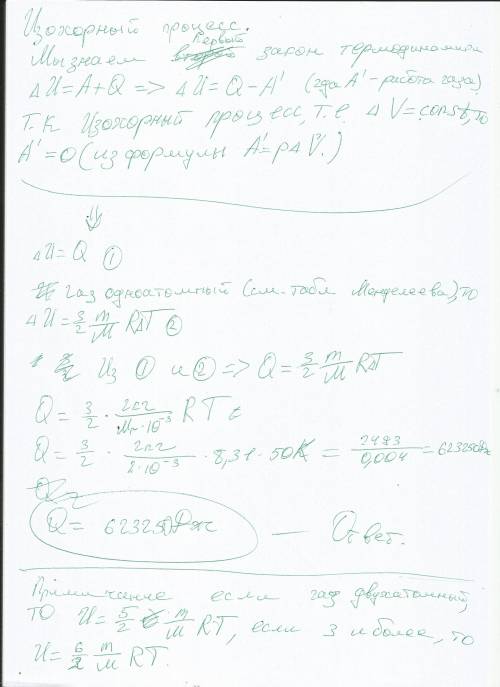 Изохорный процесс.
Первый
Мы знаем закон термодинамики
ΔU=A+Q => ΔU=Q-A' (где A' - работа газа)
Т.к Изохорный процесс, т.е. ΔV=const, то
A'=0 (из формулы A'=pΔV.)
ΔU=Q ①
газ одноатомный (см. табл Менделеева), то
ΔU=3/2 m/M RΔT ②
Из ① и ② => Q=3/2 m/M RΔT
Q=3/2 · 2кг/Mr·10⁻³ RT
Q=3/2 · 2кг/2·10⁻³ · 8,31·50K = 2493/0,004 = 623250Дж
Q= 623250Дж — Ответ.
Примечание если газ двухатомный,
то U=5/2 m/M RT, если 3 и более, то
U=6/2 m/M RT.